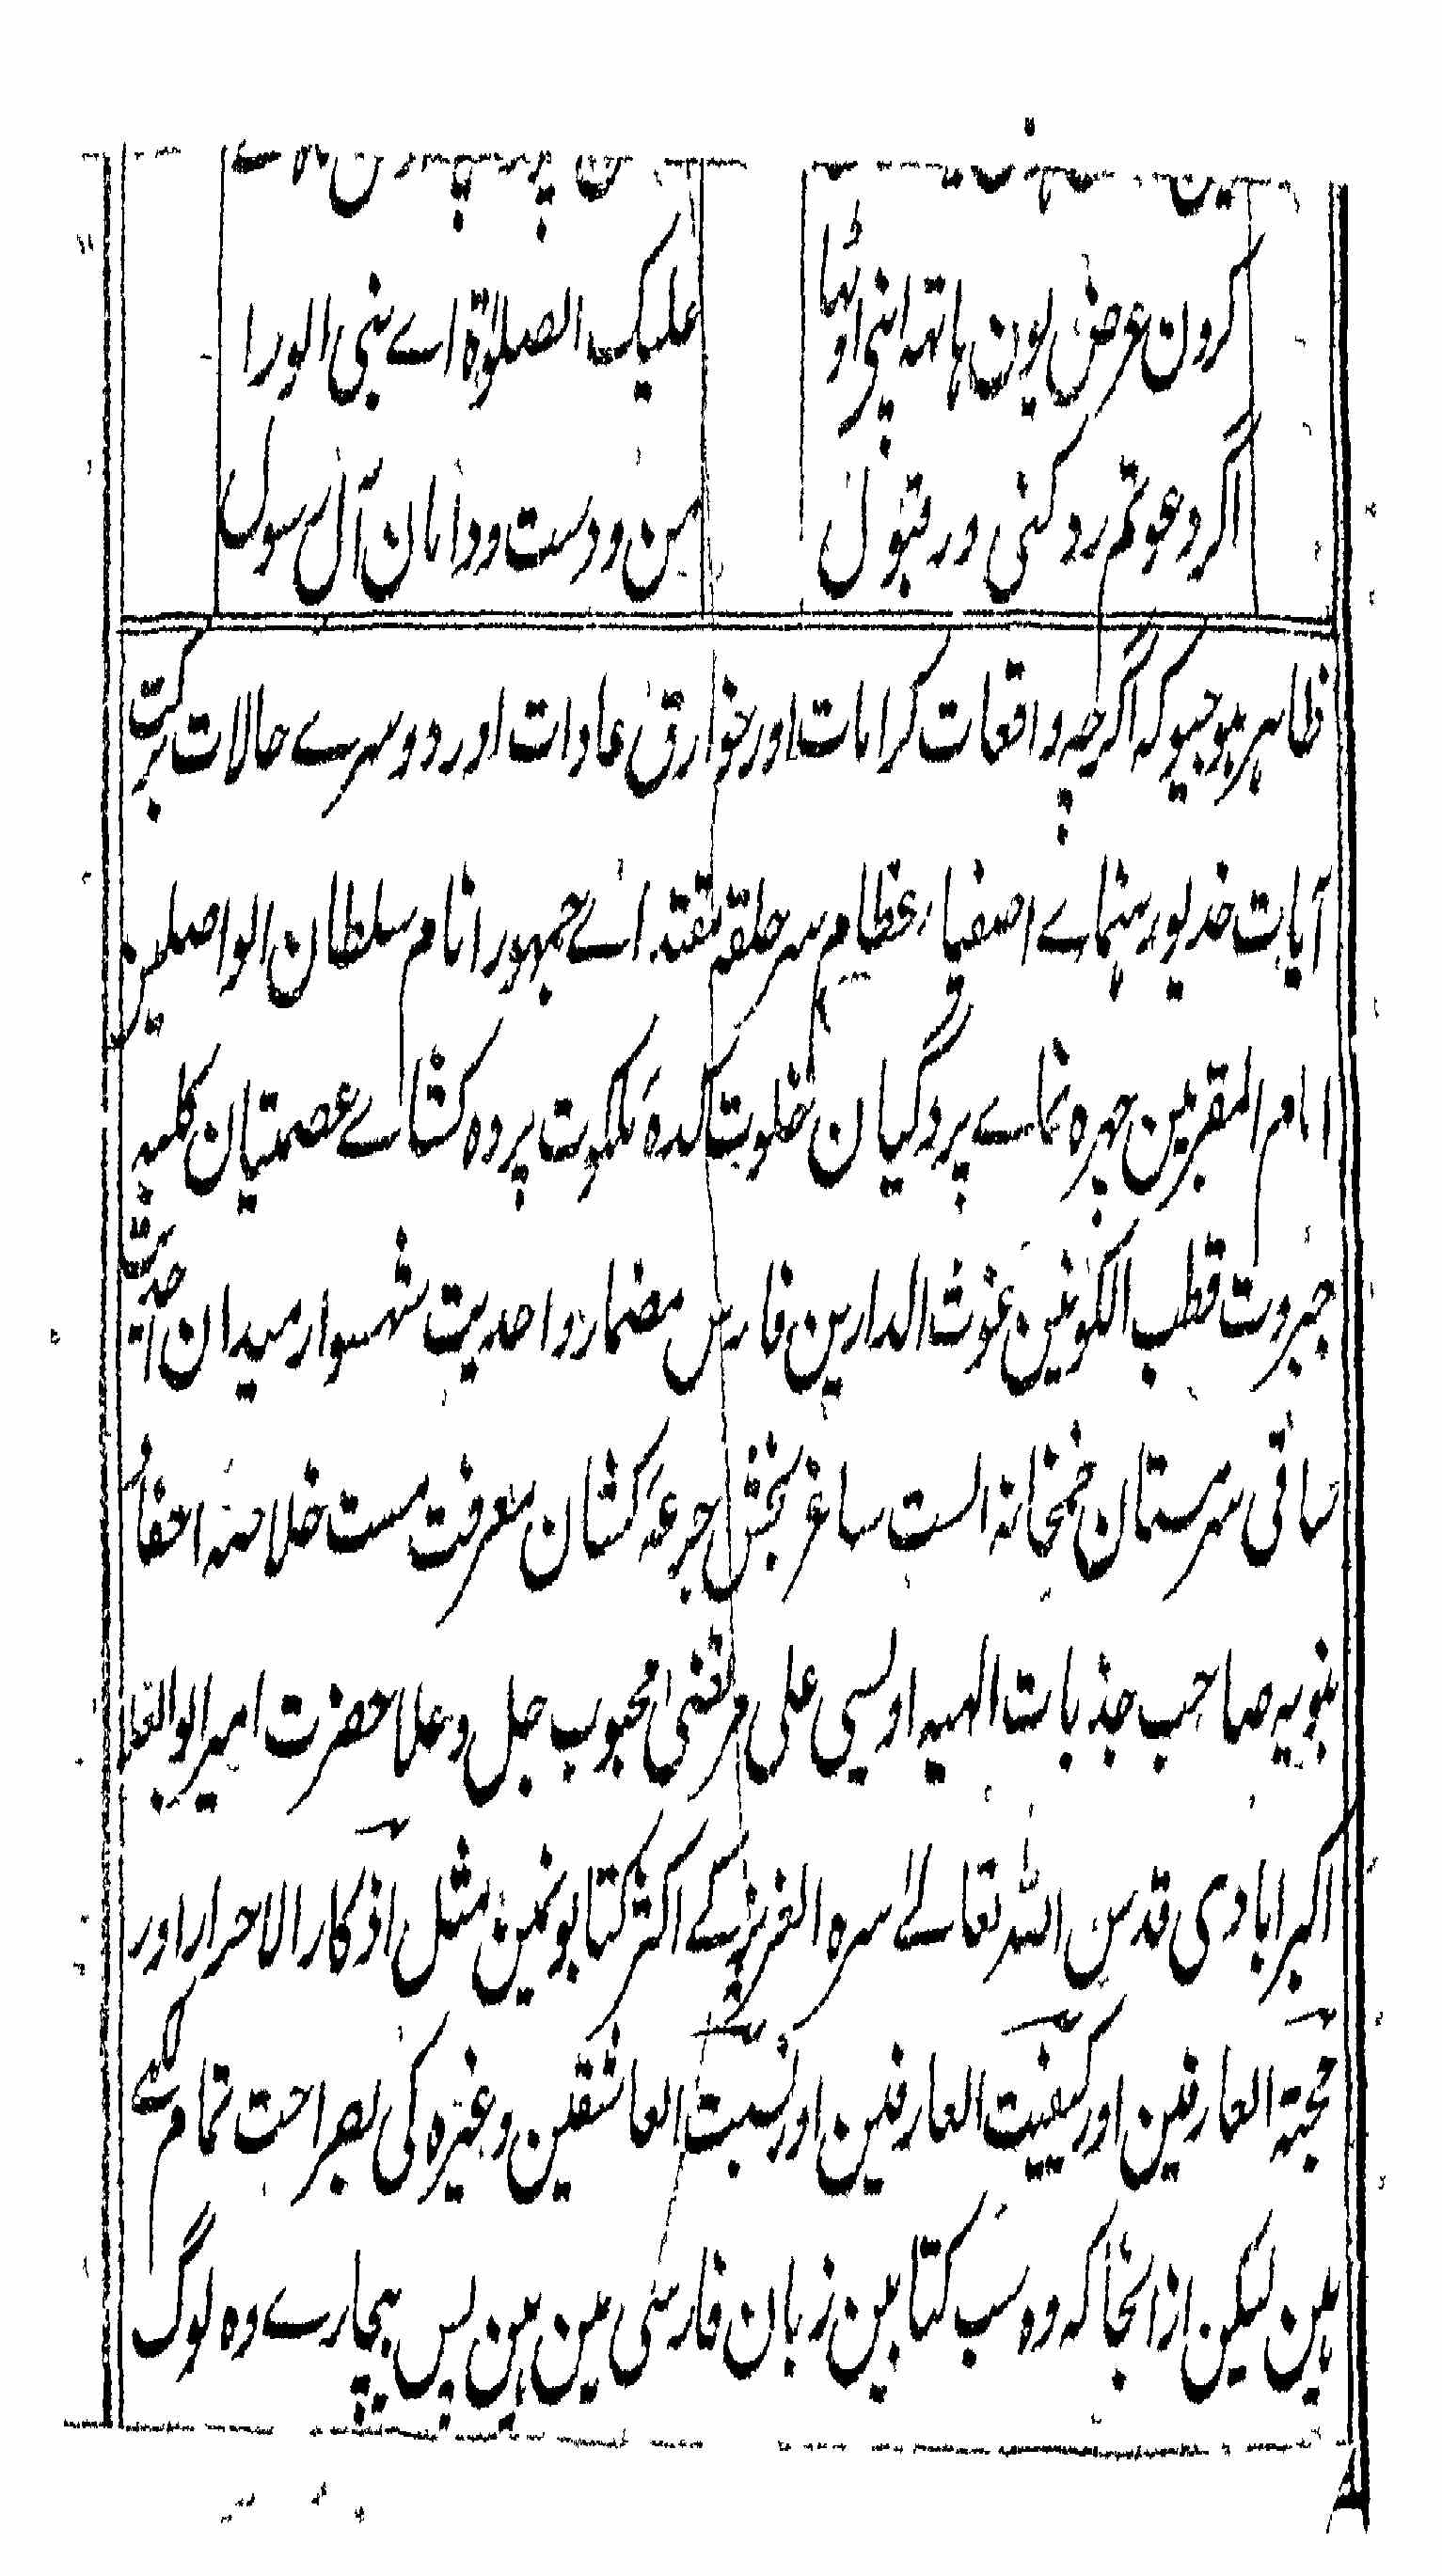 کرون عرض یون ہاتہہ اپنی اوٹہا
علیک الصلوٰۃ اے نبی الورا
اگر دعوتم رد کنی ور قبول
من و دست و دامان آل رسول
ظاہر ہوجیو کہ اگرچہ واقعات کرامات اور خوارق عادات اور دوسرے حالات برکت
آیات خدیو رہنماے اصفیاء عظام سر حلقہ مقتداے جمہور انام سلطان الواصلین
امام المقربین چہرہ نماے پردگیان خلوت کدۂ ملکوت پردہ کشاے عصمتیان کلبہ
جبروت قطب الکونین غوث الدارین فارس مضمار واحدیت شہسوار میدان احدیت
ساقی سرمستان خمخانہ الست ساغر بخش جرعہ کشان معرفت مست خلاصہ احفاد
نبویہ صاحب جذبات الہیہ اویسی علی مرتضیٰ محبوب جل وعلا حضرت امیر ابوالعلا
اکبرابادی قدس اللہ تعالےٰ سرہ العزیز کے اکثر کتابونمین مثل اذکار الاحرار اور
حجۃ العارفین اور کیفیت العارفین اور نسبت العاشقین وغیرہ کی بصراحت تمام لکھے
ہین لیکن ازانجا کہ وہ سب کتابین زبان فارسی مین ہین پس بیچارے وہ لوگ